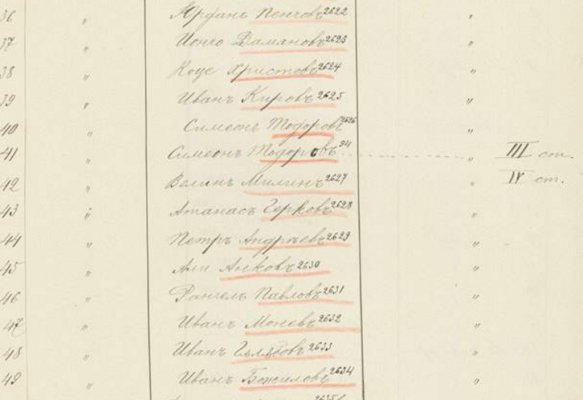 36 " Юрданъ Пенчовъ 2622 "
37 " Йончо Дамановъ 2623 "
38 " Коце Христовъ 2624 "
39 " Иванъ Кировъ 2625 "
40 " Симеонъ Тодоровъ 2626 "
41 " Симеонъ Тодоровъ 24 " III ст.
42 " Велинъ Милинъ 2627 " IV ст.
43 " Атанасъ Герковъ 2628 "
44 " Петръ Андреевъ 2629 "
45 " Али Анковъ 2630 "
46 " Рангелъ Павловъ 2631 "
47 " Иванъ Моневъ 2632 "
48 " Иванъ 2633 "
49 " Иванъ Божиловъ 2634 "